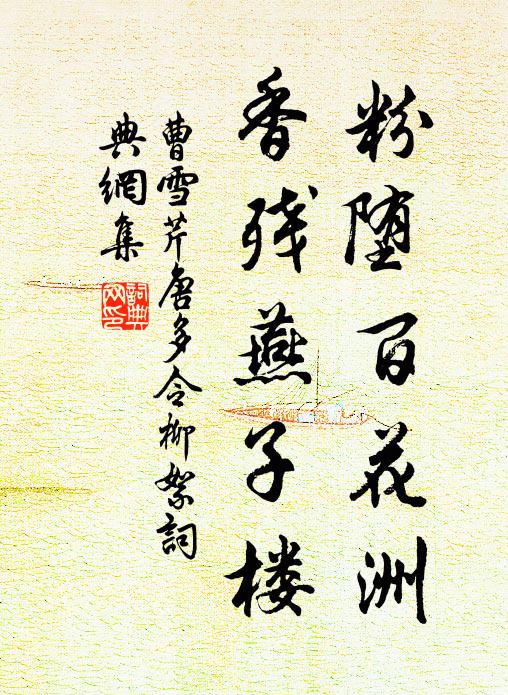 粉堕百花洲
香残燕子楼
曹雪芹唐多令柳絮詞
典網集
詞典网印